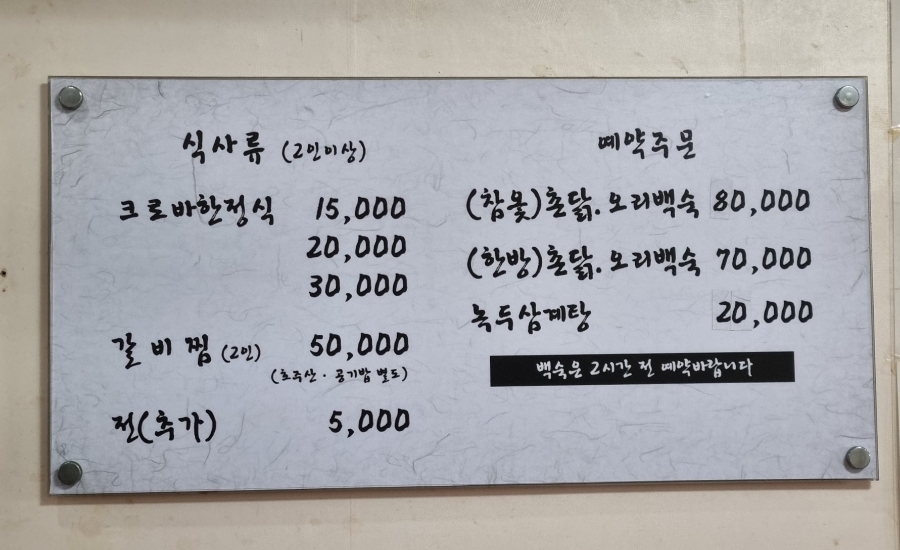 식사류 (2인이상)
크로바한정식 15,000
20,000
30,000
갈비찜 (2인) 50,000
(호주산 · 공기밥 별도)
전(추가) 5,000
예약주문
(참옻)촌닭.오리백숙 80,000
(한방)촌닭.오리백숙 70,000
녹두삼계탕 20,000
백숙은 2시간 전 예약바랍니다